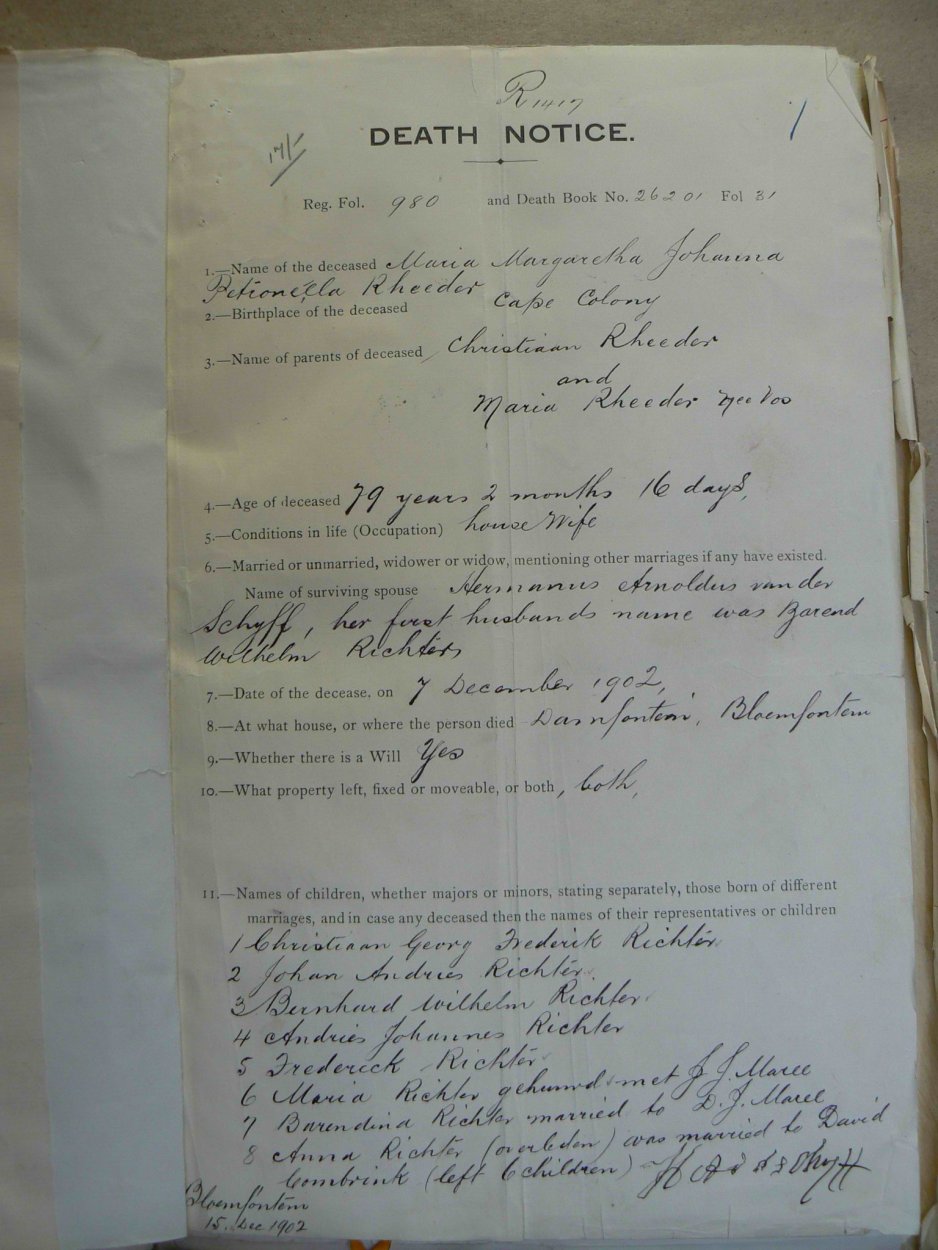 R 1417
17/-
DEATH NOTICE.
Reg. Fol. 980 and Death Book No. 26201 Fol 31
1.—Name of the deceased Maria Margaretha Johanna
Petronella Rheeder
2.—Birthplace of the deceased Cape Colony
3.—Name of parents of deceased Christiaan Rheeder
and
Maria Rheeder nee Vos
4.—Age of deceased 79 years 2 months 16 days,
5.—Conditions in life (Occupation) house Wife
6.—Married or unmarried, widower or widow, mentioning other marriages if any have existed.
Name of surviving spouse Hermanus Arnoldus van der
Schyff, her first husbands name was Barend
Wilhelm Richter,
7.—Date of the decease, on 7 December 1902,
8.—At what house, or where the person died Damfontein, Bloemfontein
9.—Whether there is a Will Yes
10.—What property left, fixed or moveable, or both, both,
11.—Names of children, whether majors or minors, stating separately, those born of different
marriages, and in case any deceased then the names of their representatives or children
1 Christiaan Georg Frederik Richter
2 Johan Andries Richter
3 Bernhard Wilhelm Richter
4 Andries Johannes Richter
5 Frederick Richter
6 Maria Richter gehuwd met J. J. Maree
7 Barendina Richter married to D. J. Maree
8 Anna Richter (overleden) was married to David
Combrink (left 6 children)
Bloemfontein
15. Dec 1902